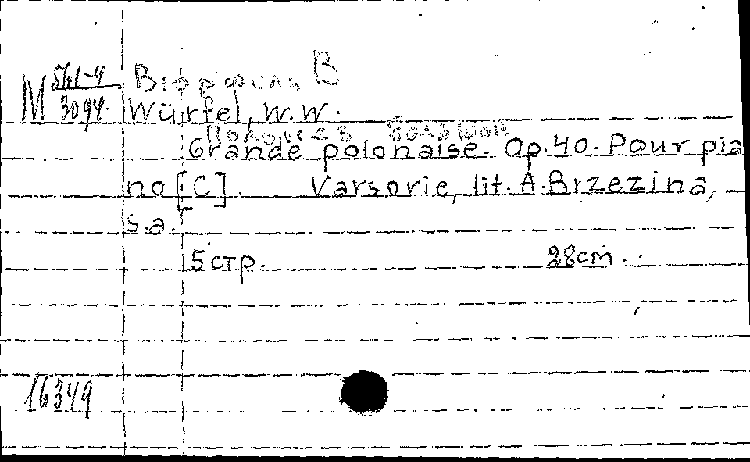 М 561-4
3094
Вюрфель, В
Würfel, W.W.
Полонез большой
Grande polonaise. Op. 40. Pour pia
no [C]. Varsovie, lit. A. Brzezina,
s.a.
5 стр. 28 cm.
16349